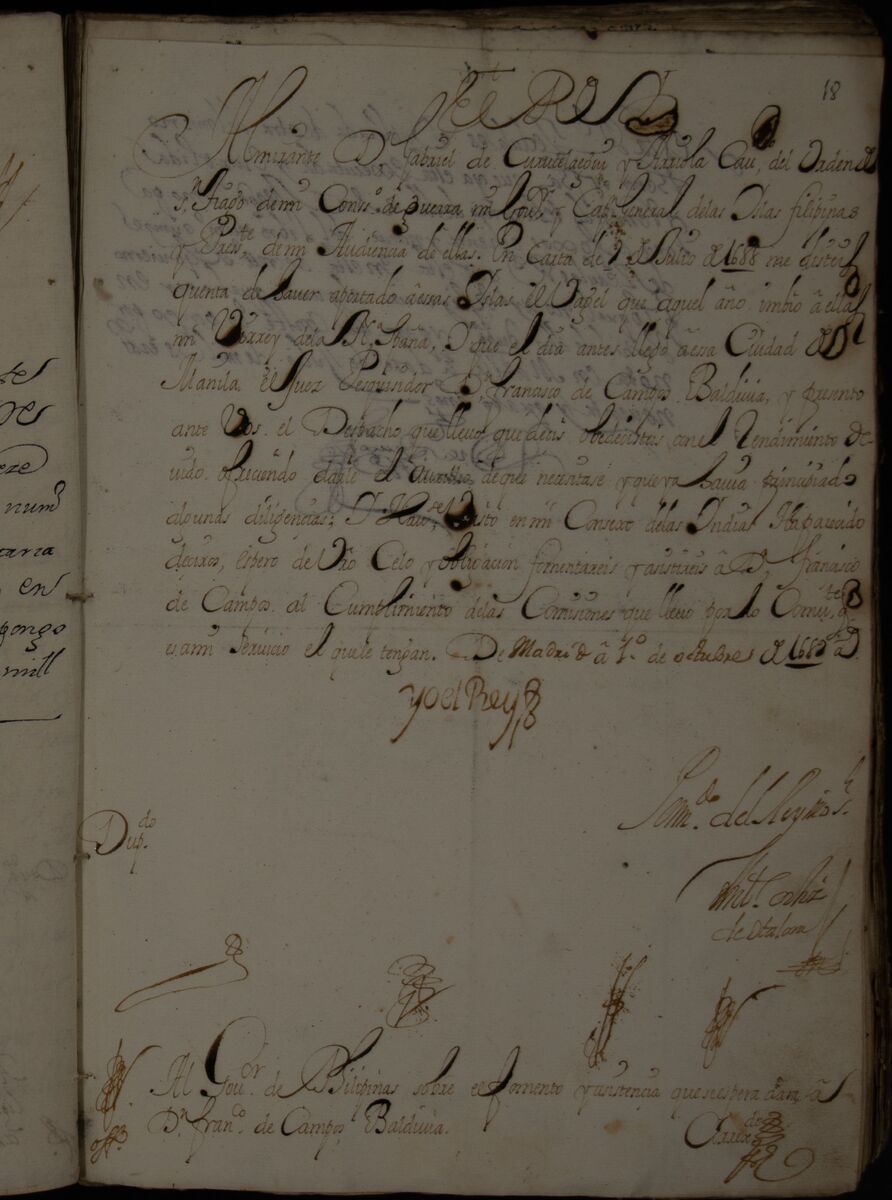 18
El Rey
Almirante D. Gabriel de Curucelaegui y Arriola Cau.º del Orden de
S.n Tiago de mi Conss.º de guerra mi Gou.or y Cap.n General delas Islas filipinas
y Press.te de mi Audiencia de ellas. En Carta de 2 de Julio de 1688 me disteis
quenta de hauer aportado a essas Islas el Vagel que aquel año imbio a ellas
mi Virrey dela N.ª España, y que el dia antes llego a essa Ciudad de
Manila el Juez Pesquisidor D.n francisco de Campos Baldiuia, y presento
ante Vos el Despacho que lleuo que decis obedecisteis con el Rendimiento de-
uido ofreciendo darle el auxilio de que necesitase y que ya hauia principiado
algunas diligencias; Y Hau.dose Visto en mi Consexo delas Indias Ha parecido
deciros, espero de Vro Celo y obligacion fomentareis y asistireis a D.n francisco
de Campos al Cumplimiento delas Comisiones que lleuo por lo Comu.te q
es a mi seruicio el que le tengan. De Madrid a 1.º de octubre de 1689 a.s
yo el Rey
Dup.do
Al Gou.or de Philipinas sobre el fomento y asistencia que se espera dara a
D.n fran.co de Campos Baldiuia.